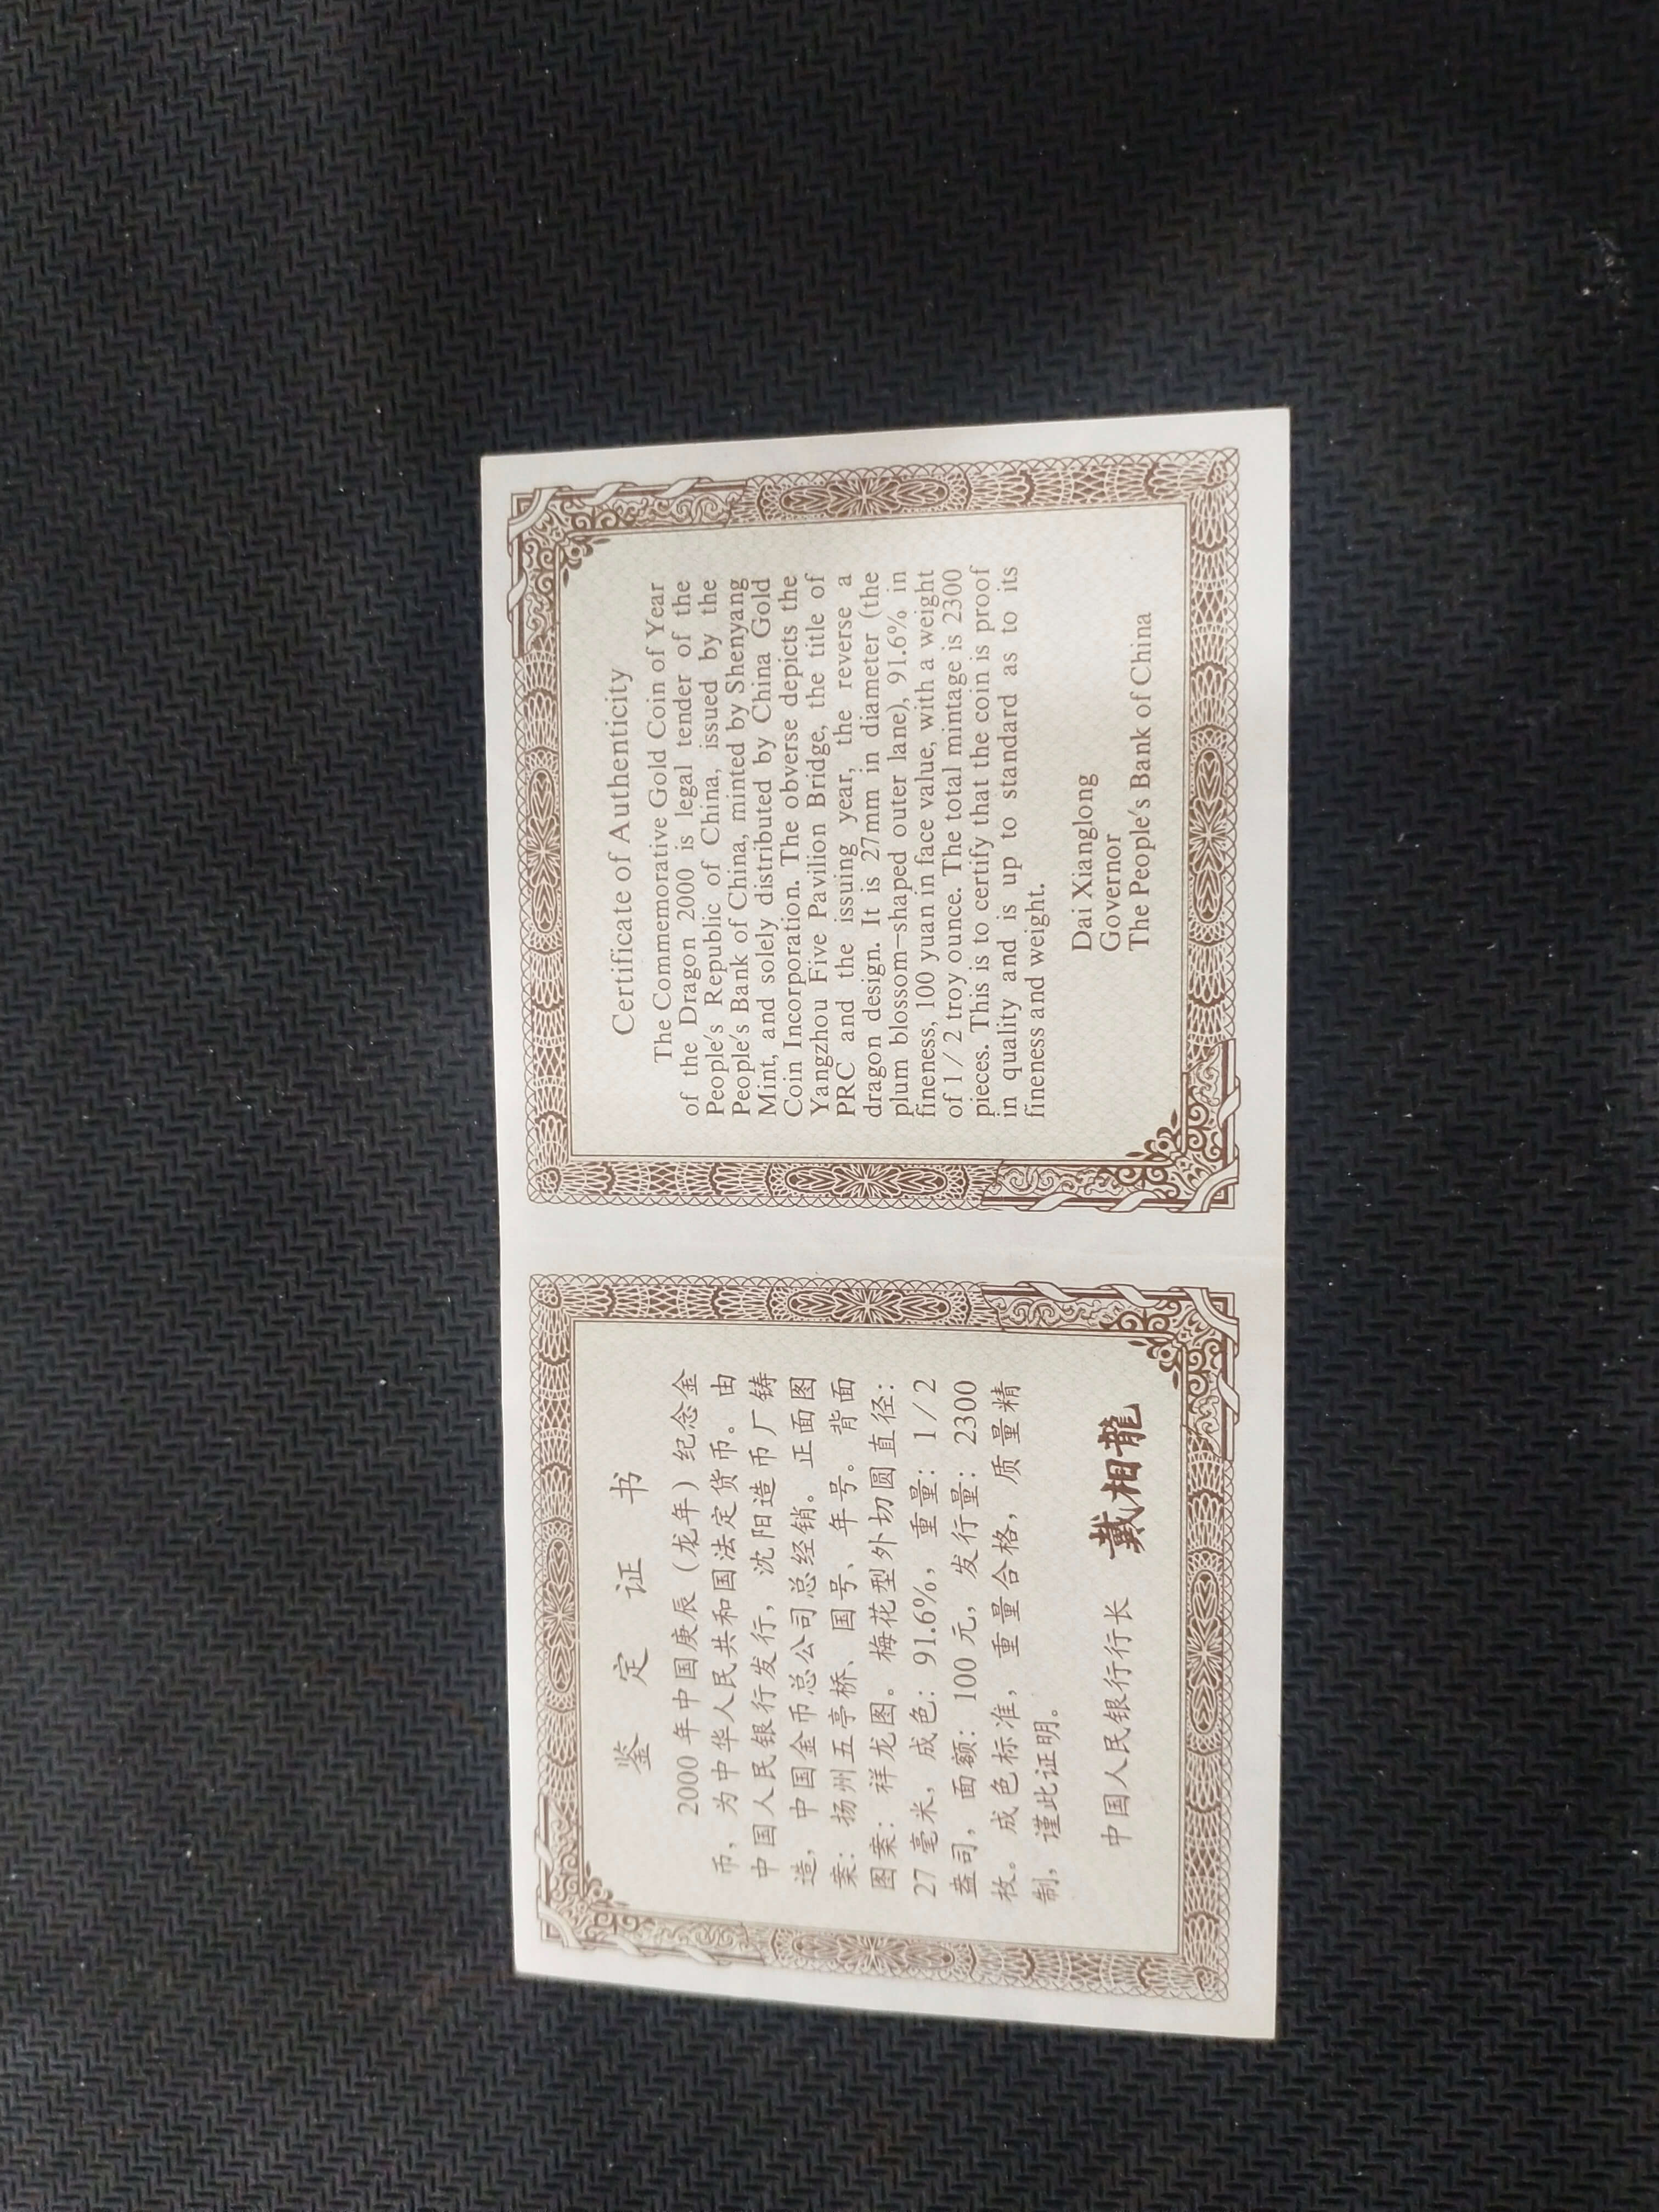 鉴定证书
2000 年中国庚辰（龙年）纪念金
币，为中华人民共和国法定货币。由
中国人民银行发行，沈阳造币厂铸
造，中国金币总公司总经销。正面图
案：扬州五亭桥、国号、年号。背面
图案：祥龙图。梅花型外切圆直径：
27 毫米，成色：91.6%，重量：1/2
盎司，面额：100 元，发行量：2300
枚。成色标准，重量合格，质量精
制，谨此证明。
中国人民银行行长 戴相龍
Certificate of Authenticity
The Commemorative Gold Coin of Year
of the Dragon 2000 is legal tender of the
People's Republic of China, issued by the
People's Bank of China, minted by Shenyang
Mint, and solely distributed by China Gold
Coin Incorporation. The obverse depicts the
Yangzhou Five Pavilion Bridge, the title of
PRC and the issuing year, the reverse a
dragon design. It is 27mm in diameter (the
plum blossom-shaped outer lane), 91.6% in
fineness, 100 yuan in face value, with a weight
of 1/2 troy ounce. The total mintage is 2300
pieces. This is to certify that the coin is proof
in quality and is up to standard as to its
fineness and weight.
Dai Xianglong
Governor
The People's Bank of China